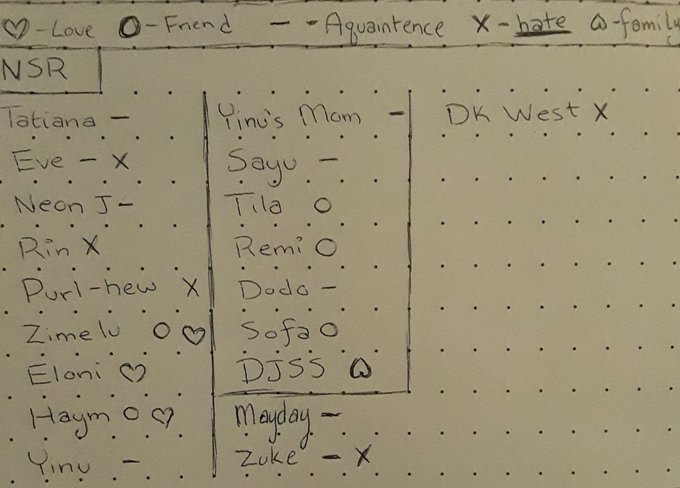 ♡-Love O-Friend - - Aquaintence X-hate ♤-family
NSR
Tatiana -
Eve - X
Neon J -
Rin X
Purl-hew X
Zimelu O ♡
Eloni ♡
Haym O ♡
Yinu -
Yinu's Mom -
Sayu -
Tila O
Remi O
Dodo -
Sofa O
DJSS ♤
Mayday -
Zuke - X
DK West X